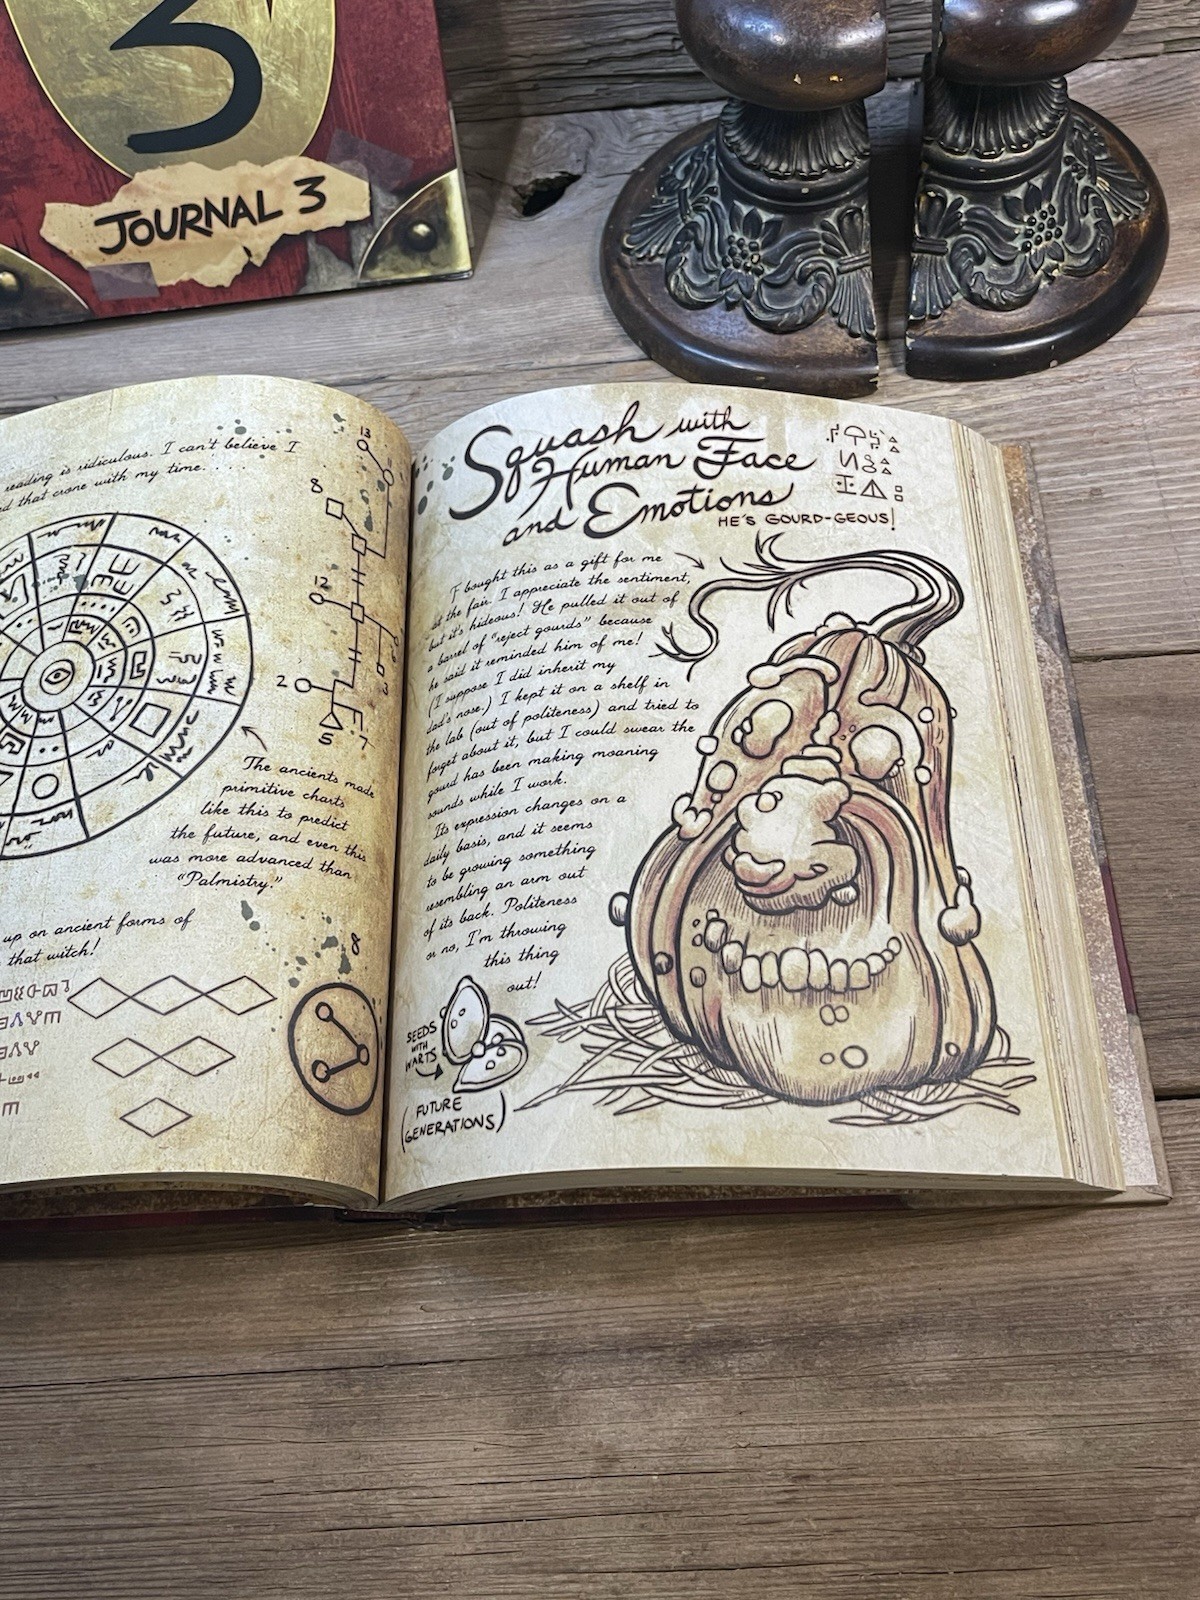 3
JOURNAL 3
reading is ridiculous. I can't believe I
that crone with my time. . . .
13
8
12
2
3
5
7
The ancients made
primitive charts
like this to predict
the future, and even this
was more advanced than
"Palmistry."
up on ancient forms of
that witch!
8
Squash with
Human Face
and Emotions
HE'S GOURD-GEOUS!
I bought this as a gift for me
at the fair. I appreciate the sentiment,
but it's hideous! He pulled it out of
a barrel of "reject gourds" because
he said it reminded him of me!
(I suppose I did inherit my
dad's nose.) I kept it on a shelf in
the lab (out of politeness) and tried to
forget about it, but I could swear the
gourd has been making moaning
sounds while I work.
Its expression changes on a
daily basis, and it seems
to be growing something
resembling an arm out
of its back. Politeness
or no, I'm throwing
this thing
out!
SEEDS
WITH
WARTS
(FUTURE
GENERATIONS)